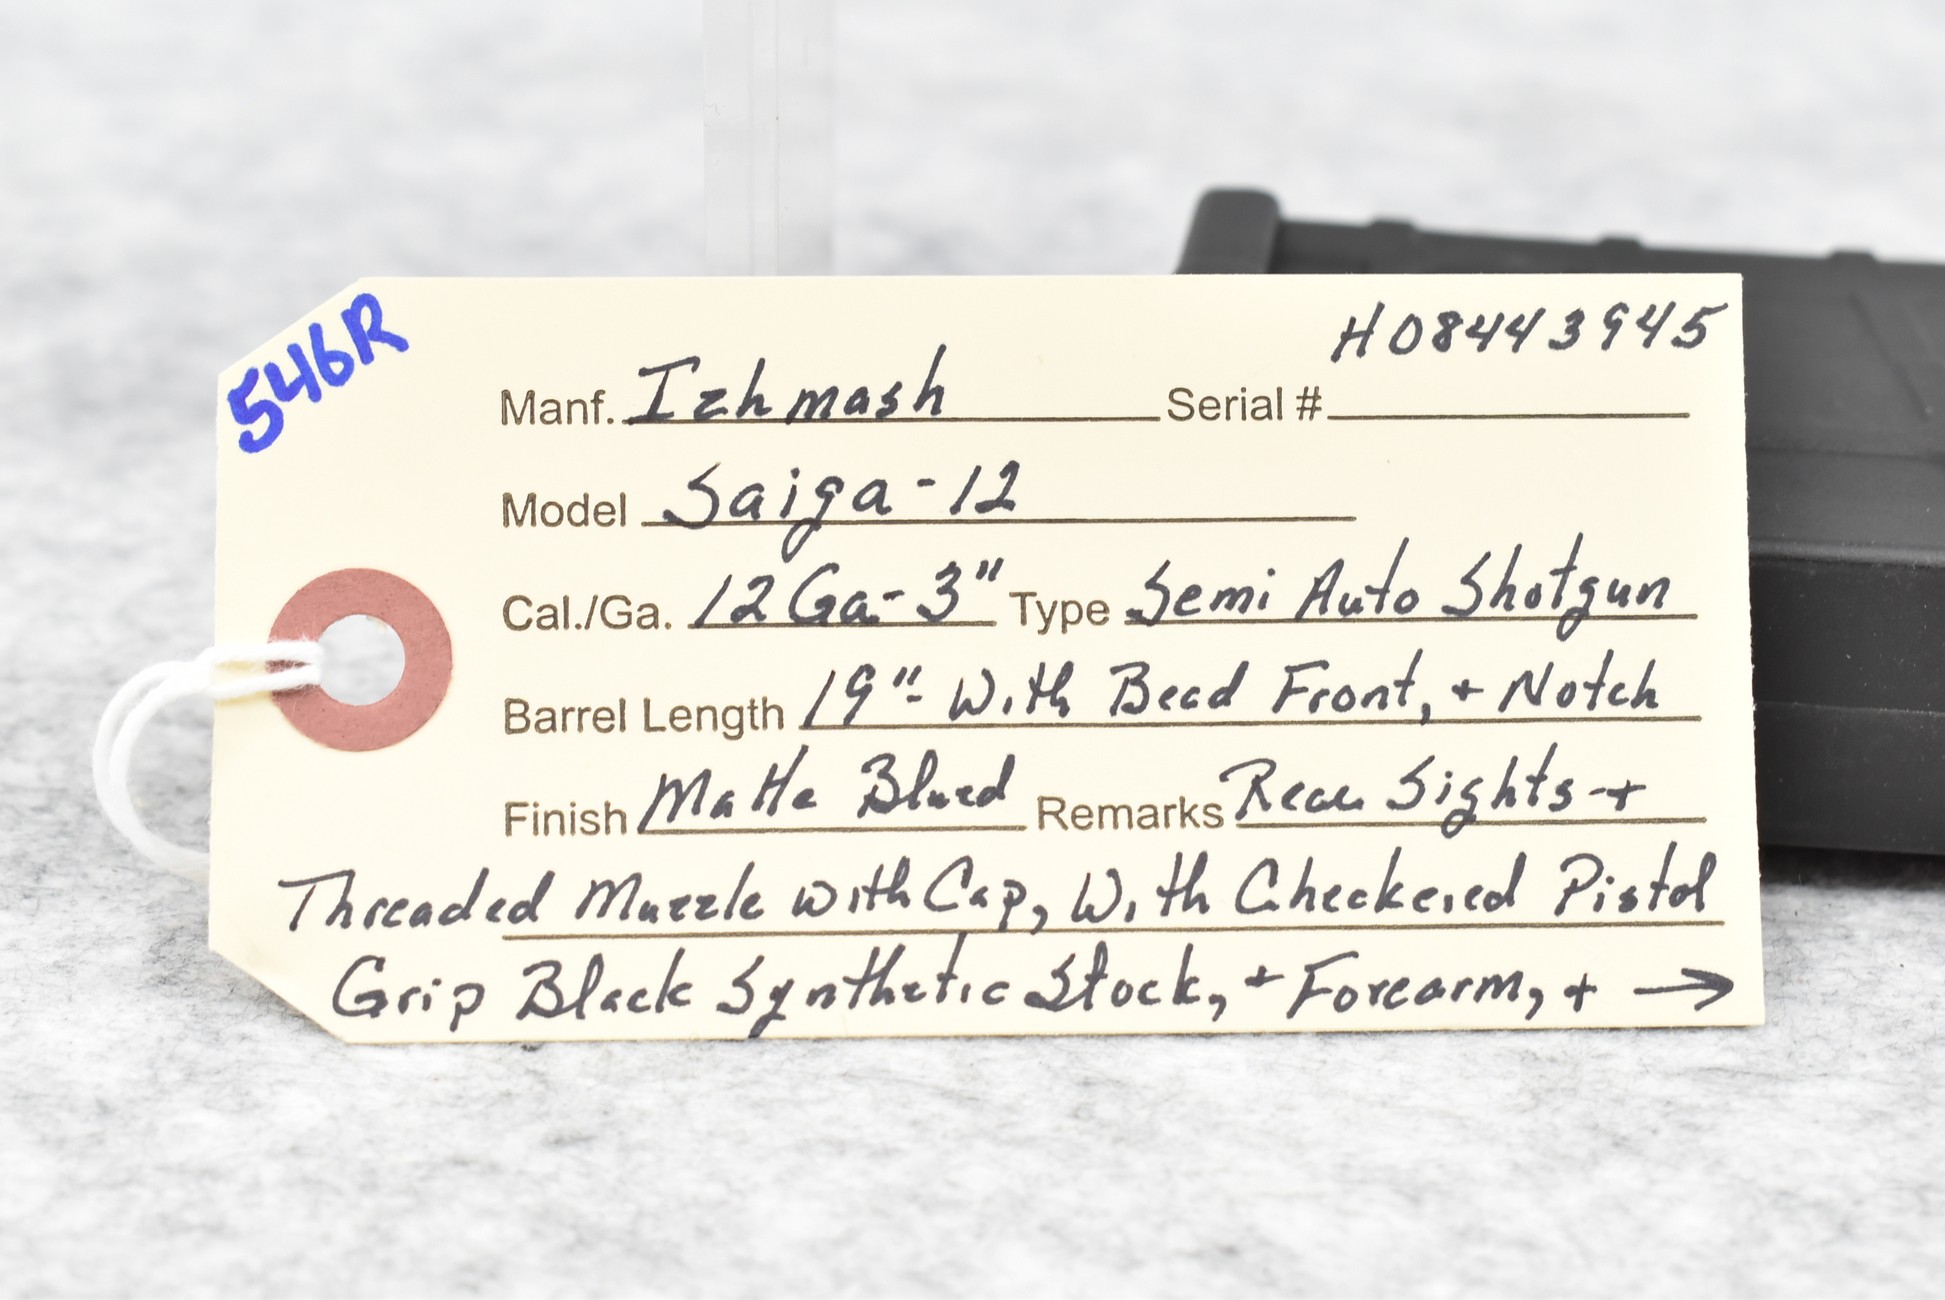 546R
H08443945
Manf. Izhmash Serial #
Model Saiga-12
Cal./Ga. 12 Ga-3" Type Semi Auto Shotgun
Barrel Length 19"- With Bead Front, + Notch
Finish Matte Blued Remarks Rear Sights-+
Threaded Muzzle with Cap, With Checkered Pistol
Grip Black Synthetic Stock, + Forearm, + →